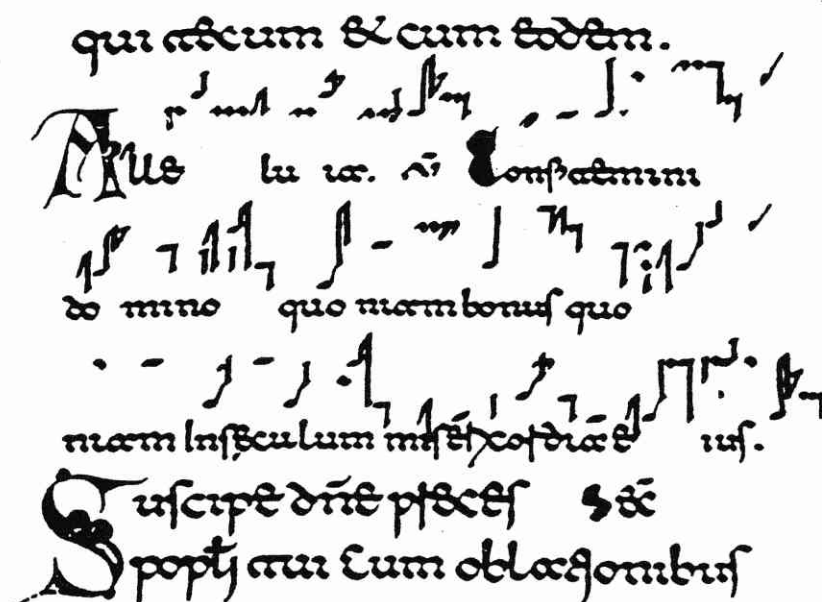 qui tecum & cum eodem.
Alle lu ia. Confitemini
do mino quo niam bonus quo
niam Inseculum misericordia e ius.
Suscipe dn̄e preces
popłi tui Cum oblationibus